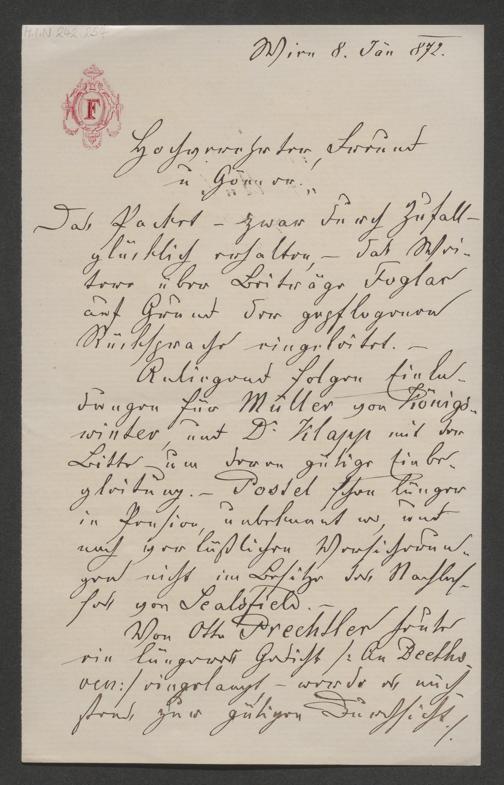 H.I.N. 242.257
Wien 8. Jän 872.
F
Hochverehrter Freund
u Gönner.
Das Packet – zwar durch Zufall –
glücklich erhalten, – das Wei-
tere über Beiträge Foglar
auf Grund der gepflogenen
Rücksprache eingeleitet. –
Anliegend folgen Einla-
dungen für Müller von Königs-
winter, und Dr. Klapp mit der
Bitte – um deren gütige Einbe-
gleitung. – Postel schon länger
in Pension, unbekannt wo, und
nach verläßlichen Versicherun-
gen nicht im Besitze des Nachlas-
ses von Sealsfield. –
Von Otto Prechtler heute
ein längeres Gedicht /: An Beetho-
ven :/ eingelangt – werde es näch-
stens zur gütigen Durchsicht